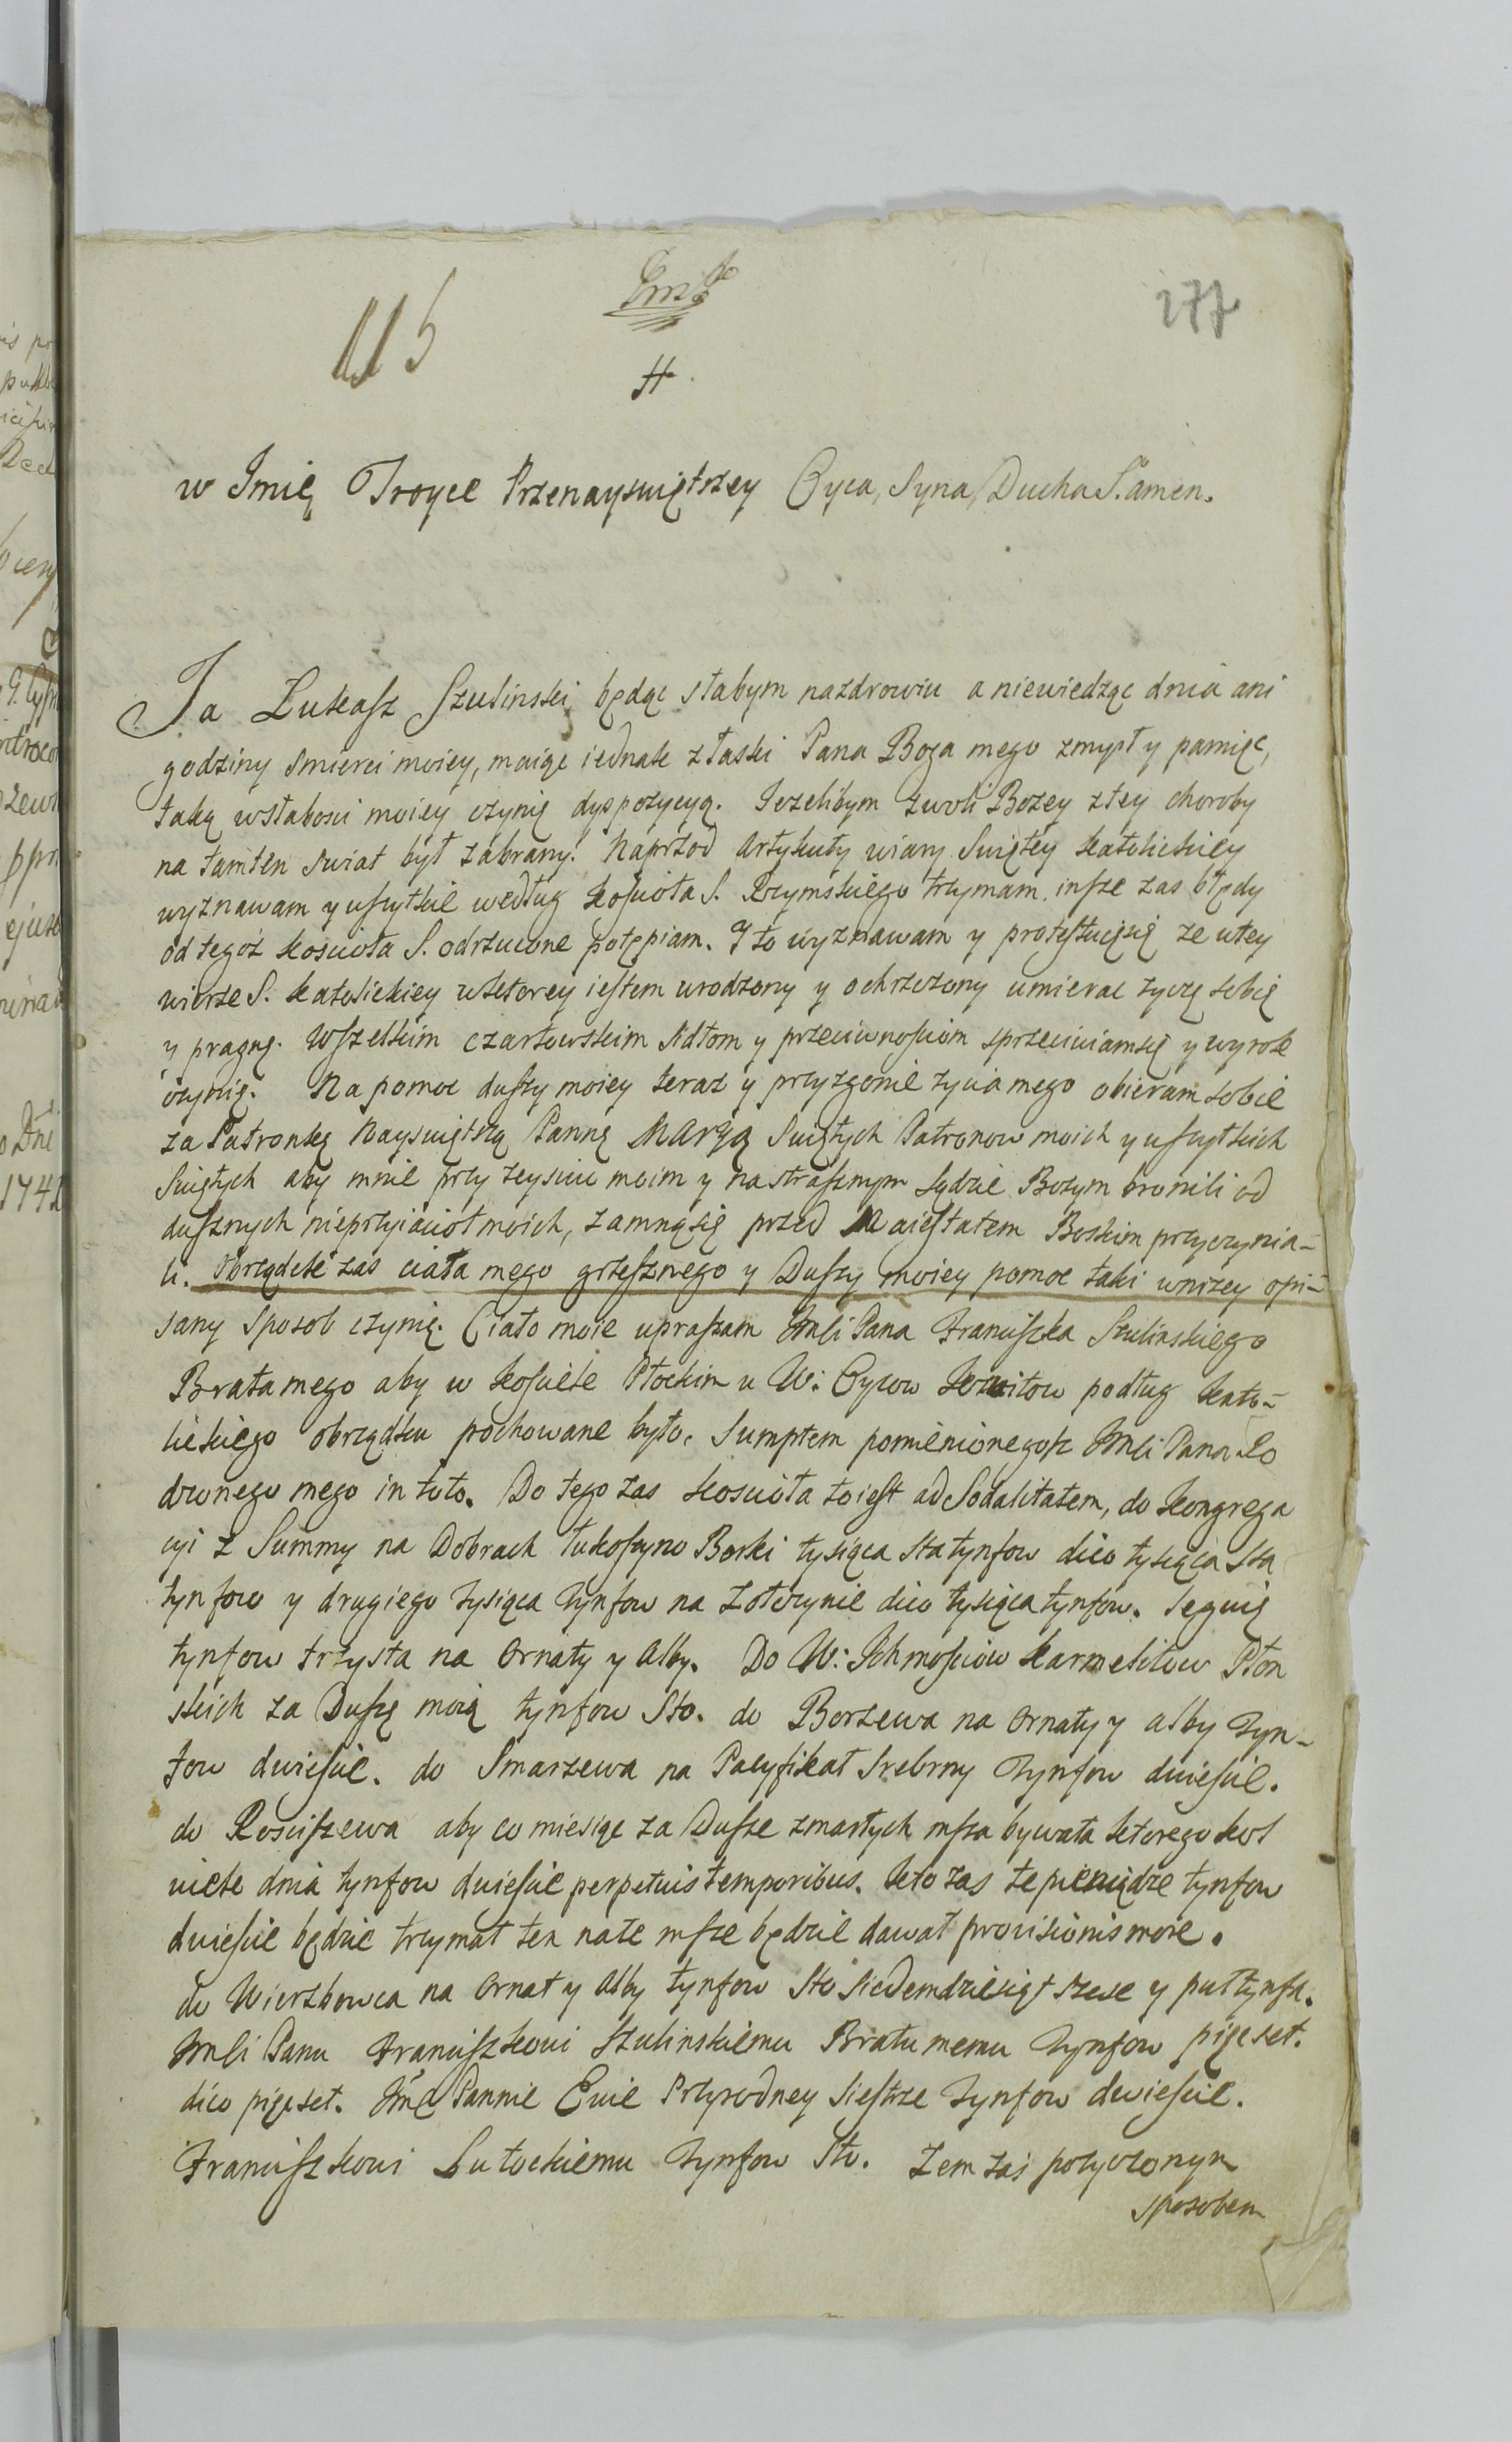 115
277
H
w Imię Troyce Przenayswiętrzey Oyca, Syna, Ducha S. amen.
Ja Łukasz Szulinski będąc słabym nazdrowiu a niewiedząc dnia ani
godziny smierci moiey, maiąc iednak z łaski Pana Boga mego zmysł y pamięc,
taką wsłabosci moiey czynię dyspozycyą. Iezelibym zwoli Bozey ztey choroby
na tamten swiat był zabrany. Naprzod Artykuły wiary Swiętey katolickiey
wyznawam y uszytkie według kosciola S. Rzymskiego trzymam, insze zas błędy
od tegoz kosciola S. odrzucone potępiam. Y to wyznawam y protestuięsię ze utey
wierze S. katolickiey wktorey iestem urodzony y ochrzczony umierac zyczę sobie
y pragnę. Wszelkim czartowskim sidłom y przeciwnosciom sprzeciwiamsię y wyrok
czynię. Na pomoc duszy moiey teraz y przyzgonie zycia mego obieram sobie
za Patronkę Nayswiętszą Pannę Maryą Swiętych Patronow moich y uszytkich
Swiętych aby mnie przy zeysciu moim y nastrasznym sądzie Bozym bronili od
dusznych nieprzyiaciol moich, zamnąsię przed Maiestatem Boskim przyczynia-
li. Obrządek zas ciała mego grzesznego y Duszy moiey pomoc taki wnizey opi-
sany sposob czynię. Ciało moie upraszam Imci Pana Franciszka Szulinskiego
Brata mego aby w kosciele Płockim u W: Oycow Jezuitow podług kato-
lickiego obrządku pochowane było, sumptem pomienionegosz Imci Pana Ro
dzonego mego in toto. Do tego zas kosciola toiest ad Sodalitatem, do kongrega
cyi z Summy na Dobrach Łukoszyno Borki tysiąca sta tynfow dico tysiąca sta
tynfow y drugiego tysiąca tynfow na Zoteczynie dico tysiąca tynfow.
tynfow trzysta na ornaty y alby. Do W: Ichmosciow karmelitow Płon
skich za Duszę moią tynfow sto. do Borzewa na ornaty y alby tyn-
fow dwiescie. do Smarzewa na Pacyfikat srebrny tynfow dwiescie.
do Rosciszewa aby co miesiąc za Dusze zmarłych msza bywała ktorego kol
wiek dnia tynfow dwiescie perpetuis temporibus. kto zas te pieniądze tynfow
dwiescie będzie trzymał ten nate msze będzie dawał provisionis more.
do Wierzbowca na ornat y alby tynfow sto siedemdziesiąt szesc y puł tynfa.
Imci Panu Franciszkowi Szulinskiemu Bratu memu tynfow pięcset.
dico pięcset. Imc Pannie Ewie Przyrodney Siestrze tynfow dwiescie.
Franciszkowi Lutockiemu tynfow sto. Zem zas pozyczonym
sposobem